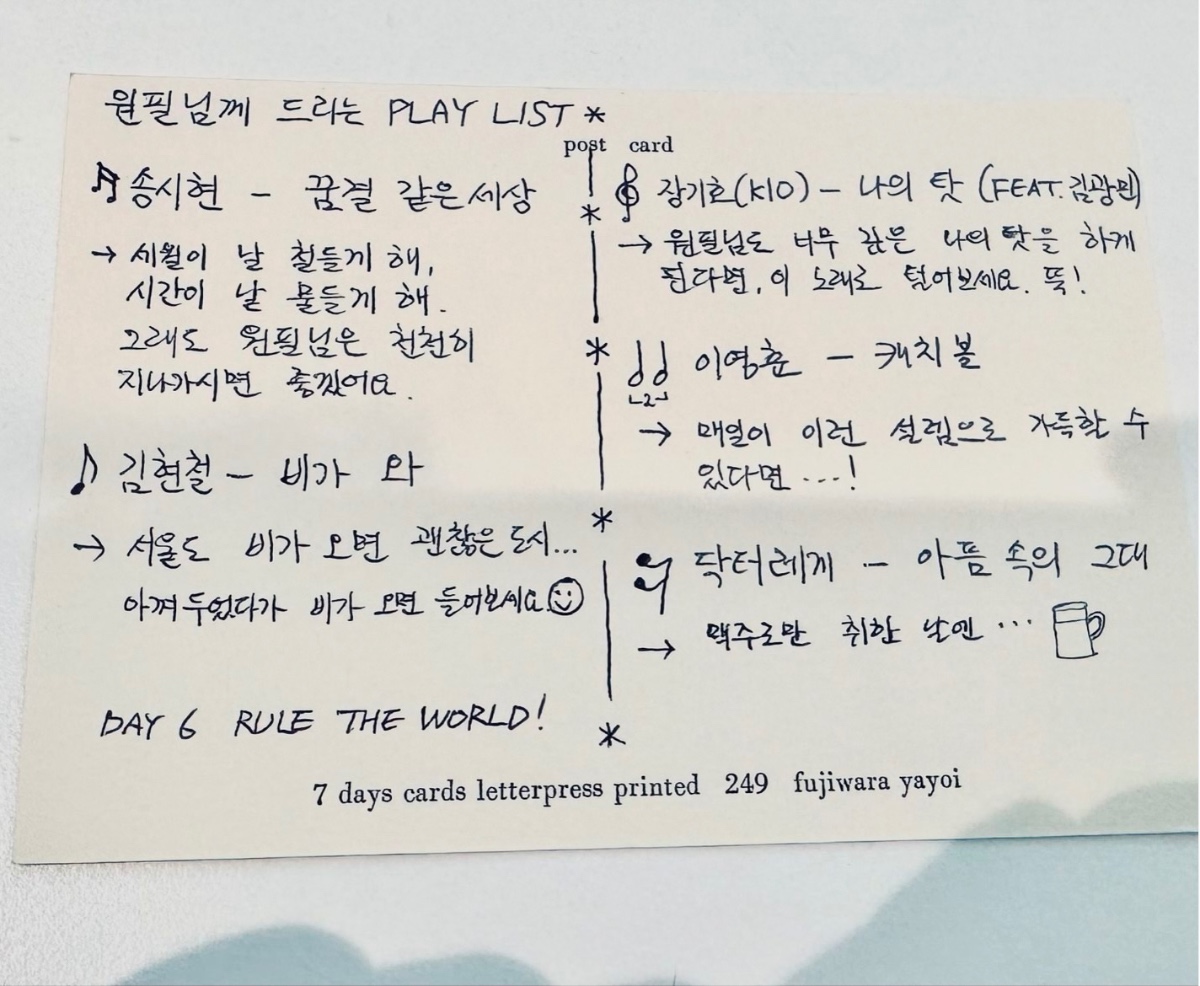 원필님께 드리는 PLAY LIST *
post card
송시현 - 꿈결 같은 세상
→ 세월이 날 철들게 해,
시간이 날 물들게 해.
그래도 원필님은 천천히
지나가시면 좋겠어요.
김현철 - 비가 와
→ 서울도 비가 오면 괜찮은 도시...
아껴 두었다가 비가 오면 들어보세요
DAY 6 RULE THE WORLD!
장기호(KIO) - 나의 탓 (FEAT. 김광민)
→ 원필님도 너무 깊은 나의 탓을 하게
된다면, 이 노래로 털어보세요. 뚝!
이영훈 - 캐치볼
-2-
→ 매일이 이런 설렘으로 가득할 수
있다면 ...!
닥터레게 - 아픔 속의 그대
→ 맥주로만 취한 날엔 ...
7 days cards letterpress printed 249 fujiwara yayoi